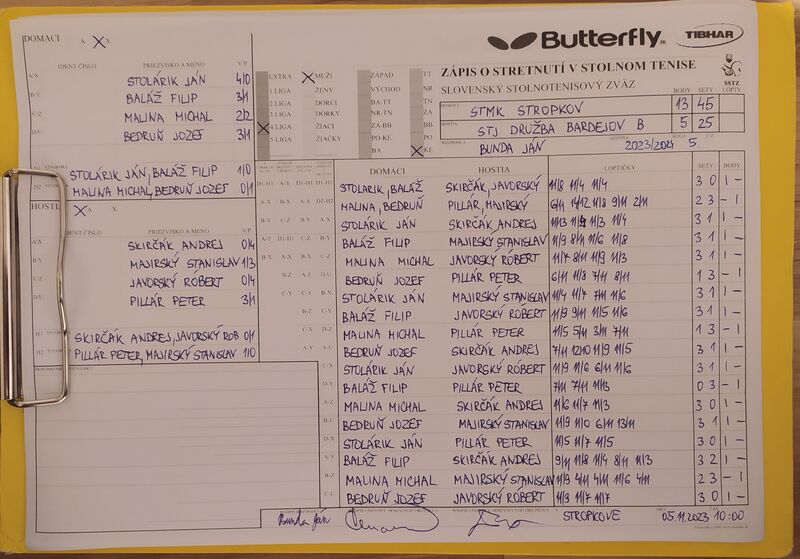 DOMACI A X
Butterfly TIBHAR
IDENT.ČÍSLO PRIEZVISKO A MENO V/P
A/X STOLÁRIK JÁN 4/0
B/Y BALÁŽ FILIP 3/1
C/Z MALINA MICHAL 2/2
D/U BEDRUŇ JOZEF 3/1
STOLÁRIK JÁN, BALÁŽ FILIP 1/0
D2 MALINA MICHAL, BEDRUŇ JOZEF 0/1
HOSTIA A X
IDENT.ČÍSLO PRIEZVISKO A MENO V/P
A/X SKIRČÁK ANDREJ 0/4
B/Y MAJIRSKÝ STANISLAV 1/3
C/Z JAVORSKÝ RÓBERT 0/4
D/U PILLÁR PETER 3/1
H1 SKIRČÁK ANDREJ, JAVORSKÝ ROB 0/1
H2 PILLÁR PETER, MAJIRSKÝ STANISLAV 1/0
EXTRA MUŽI ZÁPAD TT
1 LIGA ŽENY VÝCHOD NR
2 LIGA DORCI BA-TT TN
3 LIGA DORKY NR-TN ZA
4 LIGA ŽIACI ZA-BB BB
5 LIGA ŽIAČKY PO-KE PO
BA KE
ZÁPIS O STRETNUTÍ V STOLNOM TENISE
SLOVENSKÝ STOLNOTENISOVÝ ZVÄZ
SSTZ
BODY SETY LOPTY
DOMÁCI STMK STROPKOV 13 45
HOSTIA STJ DRUŽBA BARDEJOV B 5 25
ROZHODCA BUNDA JÁN SEZÓNA 2023/2024 KOLO 5
DOMÁCI HOSTIA LOPTIČKY SETY BODY
STOLARIK, BALÁŽ SKIRČÁK, JAVORSKÝ 11/8 11/4 11/4 3 0 1 -
MALINA, BEDRUŇ PILLÁR, MAJIRSKÝ 6/11 14/12 11/8 9/11 2/11 2 3 - 1
STOLÁRIK JÁN SKIRČÁK ANDREJ 11/13 11/9 11/3 11/4 3 1 1 -
BALÁŽ FILIP MAJIRSKÝ STANISLAV 11/9 8/11 11/6 11/8 3 1 1 -
MALINA MICHAL JAVORSKÝ RÓBERT 11/7 8/11 11/9 11/3 3 1 1 -
BEDRUŇ JOZEF PILLÁR PETER 6/11 11/8 7/11 8/11 1 3 - 1
STOLÁRIK JÁN MAJIRSKÝ STANISLAV 11/4 11/7 7/11 11/6 3 1 1 -
BALÁŽ FILIP JAVORSKÝ RÓBERT 11/9 9/11 11/5 11/6 3 1 1 -
MALINA MICHAL PILLÁR PETER 11/5 5/11 3/11 7/11 1 3 - 1
BEDRUŇ JOZEF SKIRČÁK ANDREJ 7/11 12/10 11/9 11/5 3 1 1 -
STOLÁRIK JÁN JAVORSKÝ RÓBERT 11/9 11/6 6/11 11/6 3 1 1 -
BALÁŽ FILIP PILLÁR PETER 7/11 7/11 11/13 0 3 - 1
MALINA MICHAL SKIRČÁK ANDREJ 11/6 11/7 11/3 3 0 1 -
BEDRUŇ JOZEF MAJIRSKÝ STANISLAV 11/9 11/0 6/11 13/11 3 1 1 -
STOLÁRIK JÁN PILLÁR PETER 11/5 11/7 11/5 3 0 1 -
BALÁŽ FILIP SKIRČÁK ANDREJ 9/11 11/8 11/4 8/11 11/3 3 2 1 -
MALINA MICHAL MAJIRSKÝ STANISLAV 11/9 7/11 4/11 11/6 4/11 2 3 - 1
BEDRUŇ JOZEF JAVORSKÝ RÓBERT 11/9 11/7 11/7 3 0 1 -
Bunda Ján STROPKOVE 05.11.2023 10:00